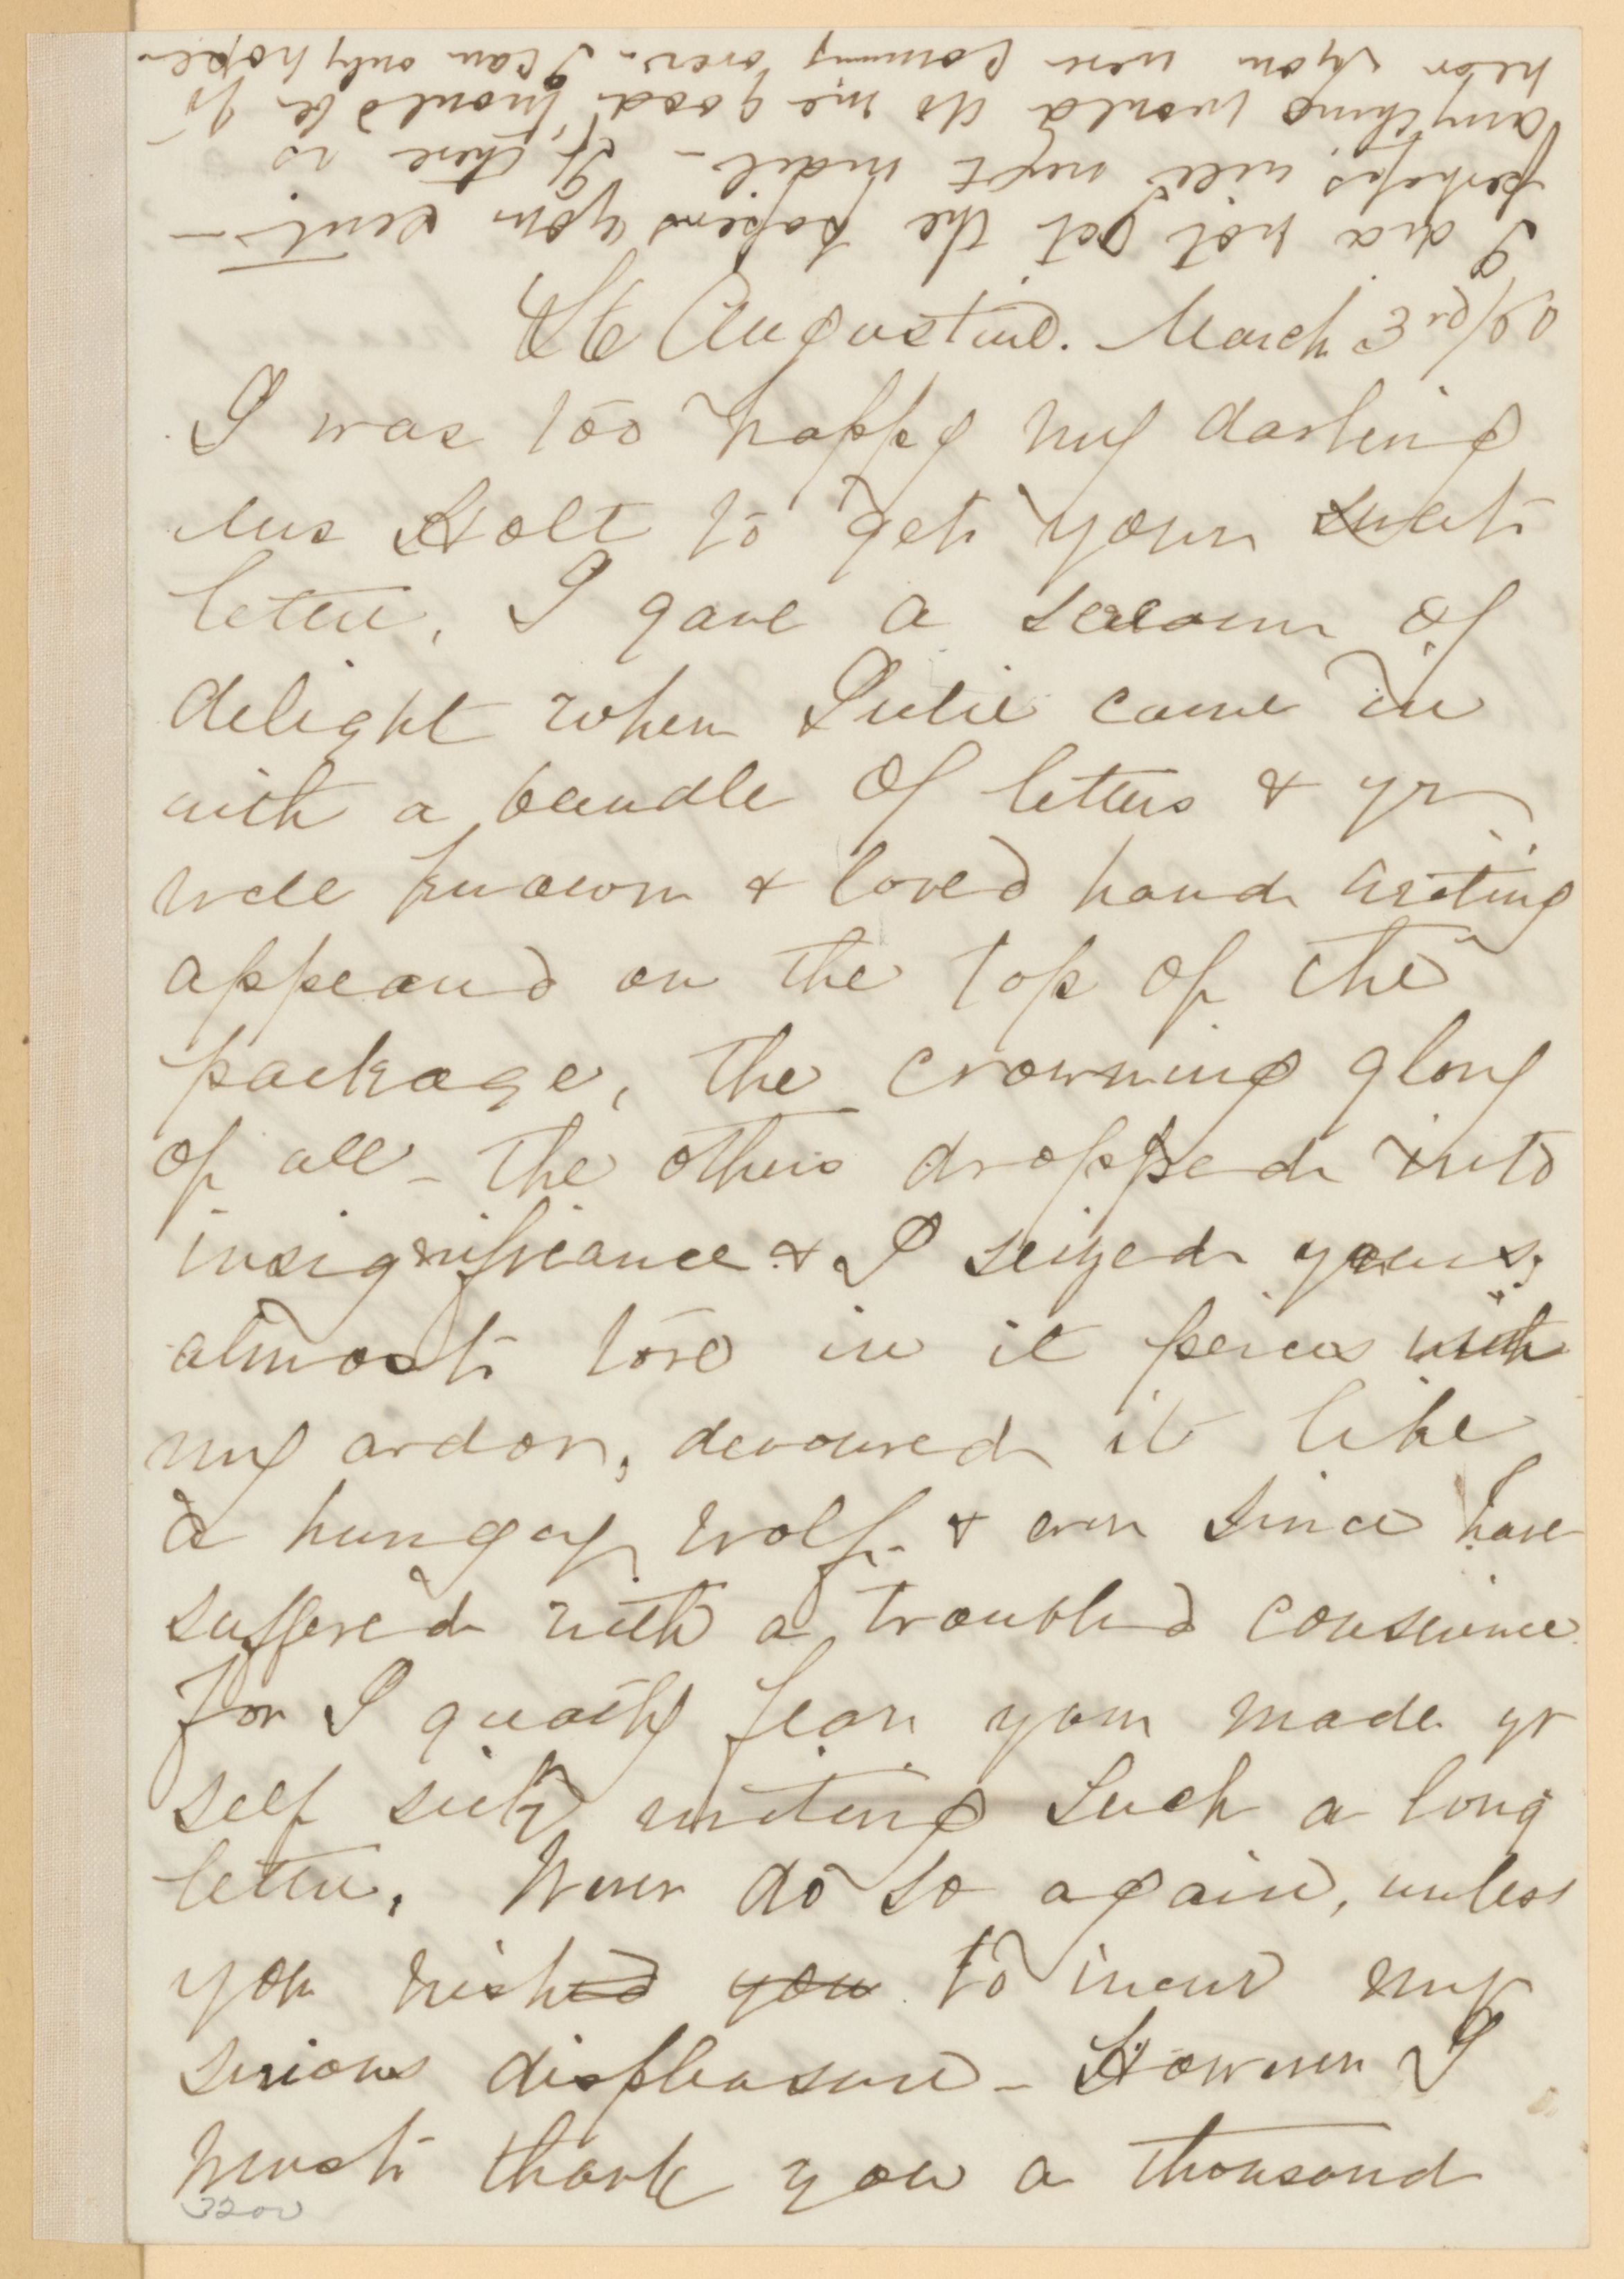 I did not get the papers you sent —
perhaps will next mail - If there is
anything would do me good, would be to
hear you were coming over - I can only hope -
St Augustine. March 3rd/
I was too happy my darling
Mrs Holt to get your sweet
letter, I gave a scream of
delight when Julie came in
with a bundle of letters & yr
well known & loved hand writing
appeared on the top of the
package, the crowning glory
of all - the others dropped into
insignificance & I seized yours,
almost tore in it peices with
my ardor, devoured it like
a hungry wolf - & ever since have
suffered with a troubled conscience
for I greatly fear you made yr
self sick writing such a long
letter. Never do so again, unless
you wished you to incur my
serious displeasure - However I
must thank you a thousand
3200